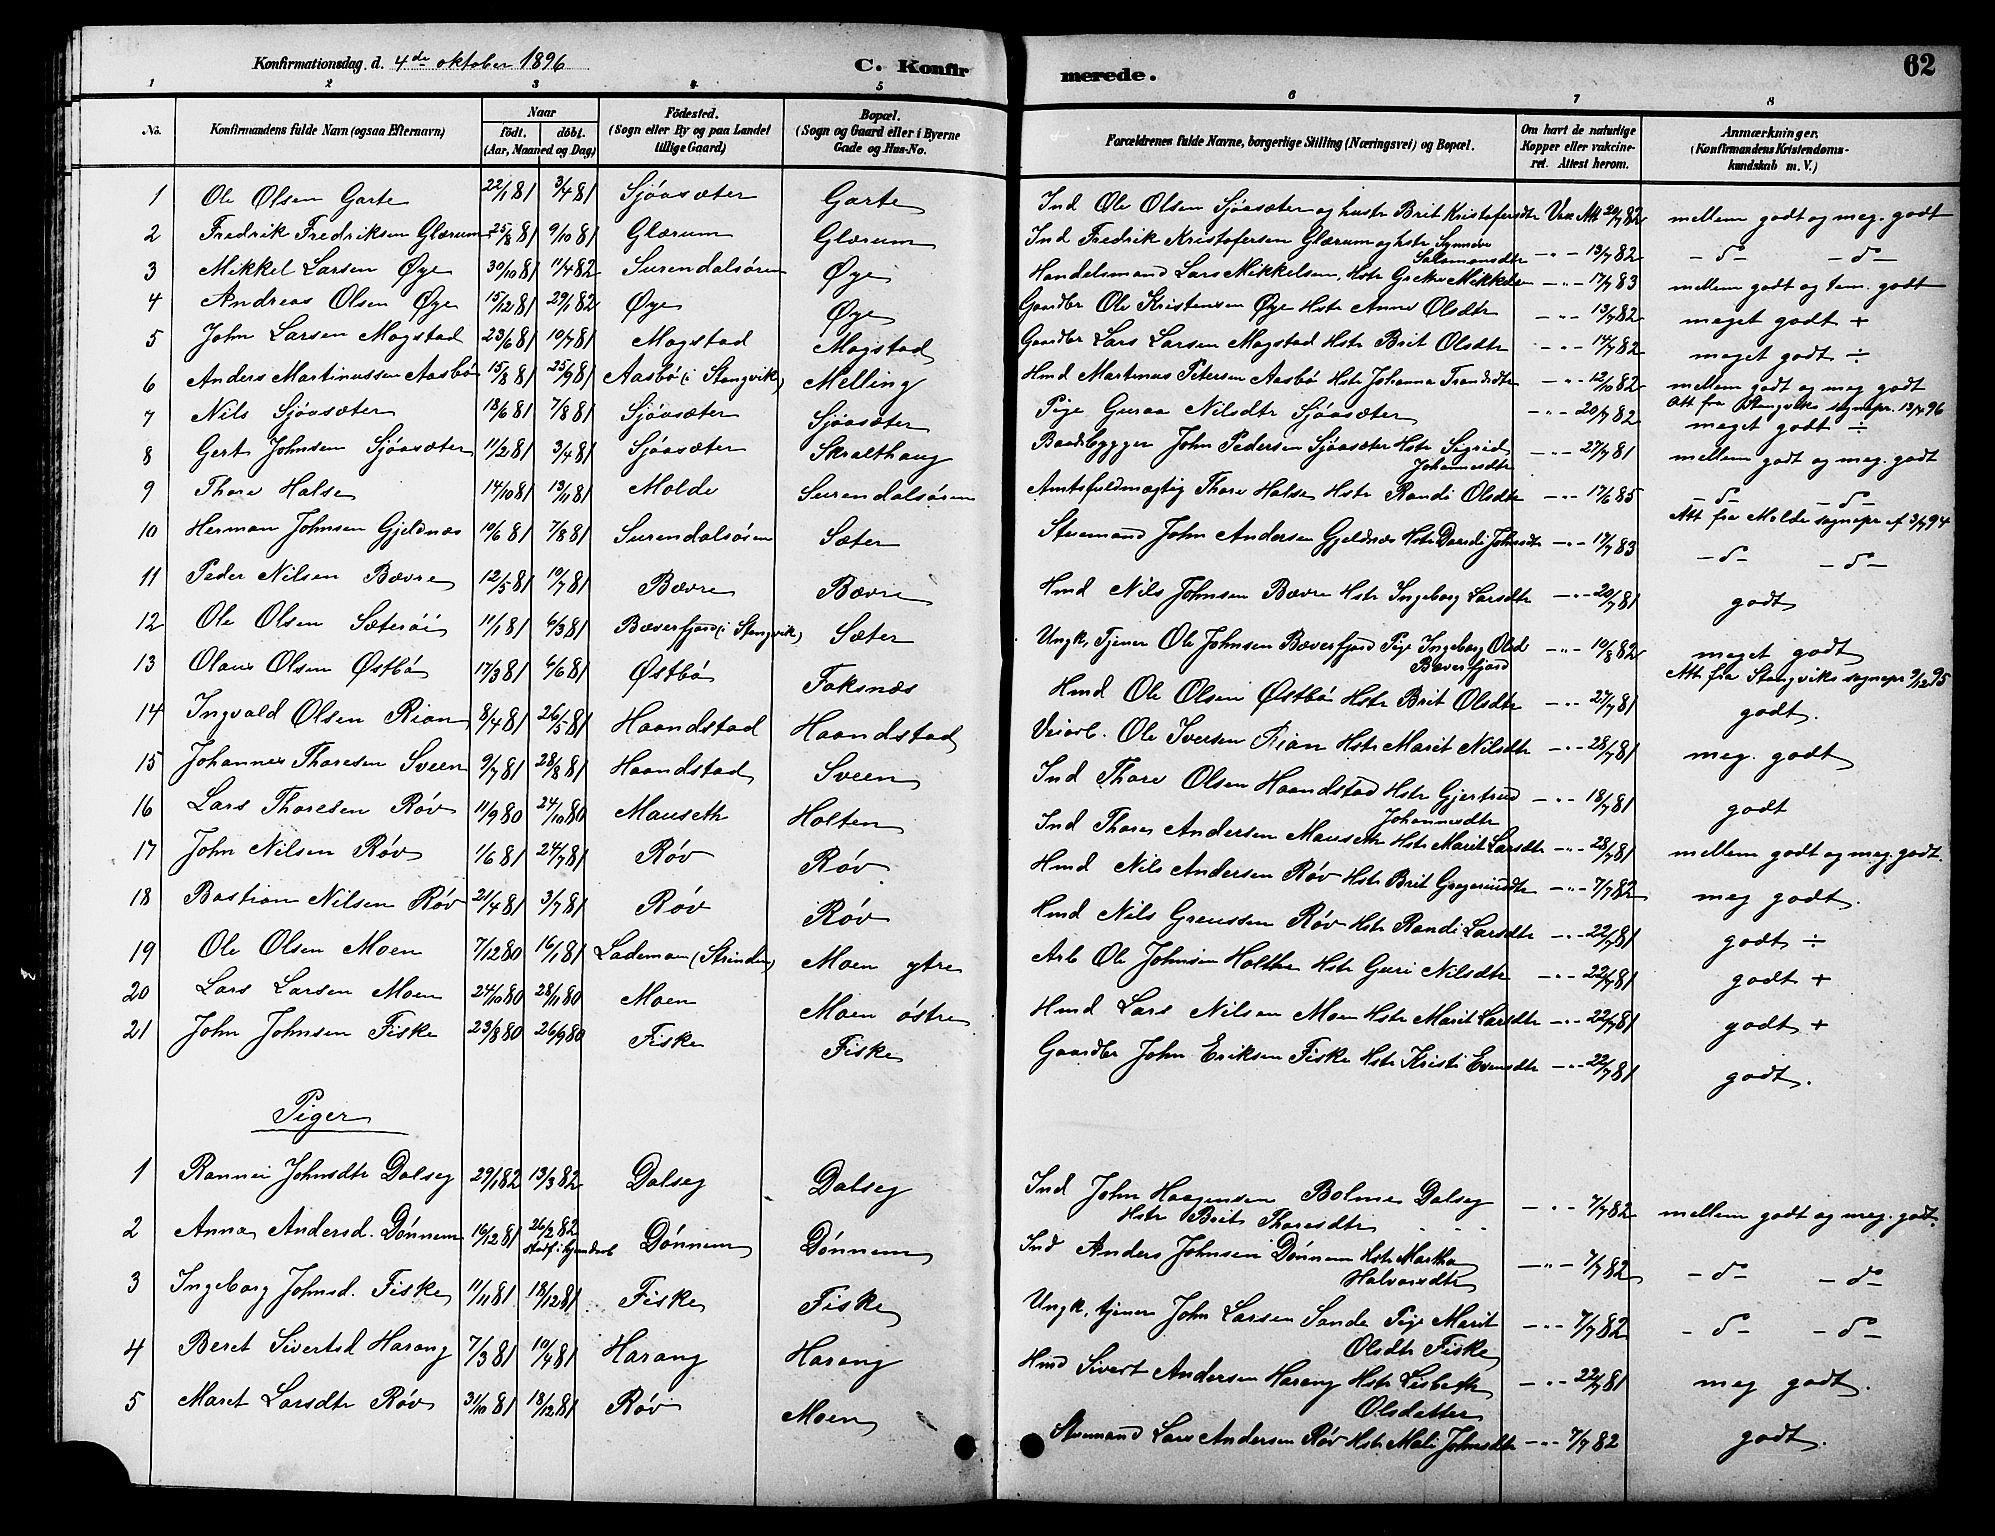 Konfirmationsdag d. 4de oktober 1896 C. Konfirmerede. 62
1 2 3 4 5 6 7 8
No. Konfirmandens fulde Navn (ogsaa Efternavn) Naar födt. döbt. (Aar, Maaned og Dag) Födested. (Sogn eller By og paa Landet tillige Gaard) Bopæl. (Sogn og Gaard eller i Byerne Gade og Hus-No. Forældrenes fulde Navne, borgerlige Stilling (Næringsvei) og Bopæl. Om havt de naturlige Kopper eller vakcineret. Attest herom. Anmærkninger. (Konfirmandens Kristendomskundskab m. V.)
1 Ole Olsen Garte 22/1 81 3/4 81 Sjöasæter Garte Ind Ole Olsen Sjöasæter og hustr Brit Kristofersdtr Vac Att 20/7 82 mellem godt og meg. godt
2 Fredrik Fredriksen Glærum 25/8 81 9/10 81 Glærum Glærum Ind Fredrik Kristofersen Glærum og hstr Synnöve Salamonsdtr -"- 13/7 82 -d- -d-
3 Mikkel Larsen Øye 30/10 81 11/4 82 Surendalsören Øye Handelsmand Lars Mikkelsen, Hstr Grethe Mikkelsen -"- 17/7 83 mellem godt og tem. godt
4 Andreas Olsen Øye 15/12 81 29/1 82 Øye Øye Gaardbr Ole Kristensen Øye Hstr Anne Olsdtr -"- 13/7 82 meget godt +
5 John Larsen Mogstad 23/6 81 10/7 81 Mogstad Mogstad Gaardbr Lars Larsen Mogstad Hstr Brit Olsdtr -"- 14/7 82 meget godt ÷
6 Anders Martinussen Aasbö 15/8 81 25/9 81 Aasbö (i Stangvik) Melling Hmd Martinus Petersen Aasbö Hstr Johanna Trondsdtr -"- 12/10 82 mellem godt og meg godt
Att fra Stangviks sognepr. 13/4 96
7 Nils Sjöasæter 18/6 81 7/8 81 Sjöasæter Sjöasæter Pige Guraa Nilsdtr Sjöasæter -"- 20/7 82 meget godt ÷
8 Gert Johnsen Sjöasæter 11/2 81 3/4 81 Sjöasæter Skralthaug Baadsbygger John Pedersen Sjöasæter Hstr Sigrid Johannesdtr -"- 27/7 81 mellem godt og meg. godt
9 Thore Halse 14/10 81 13/11 81 Molde Surendalsören Amtsfuldmægtig Thore Halse Hstr Randi Olsdtr -"- 17/6 85 -d- -d-
Att fra Molde sognepr af 3/7 94
10 Herman Johnsen Gjeldnæs 10/6 81 7/8 81 Surendalsören Sæter Stuemand John Andersen Gjeldnæs Hstr Dordi Johnsdtr -"- 17/7 83 -d- -d-
11 Peder Nilsen Bævre 12/5 81 10/7 81 Bævre Bævre Hmd Nils Johnsen Bævre Hstr Ingeborg Larsdtr -"- 20/7 81 godt
12 Ole Olsen Sæteröi 11/1 81 6/3 81 Bæverfjord (i Stangvik) Sæter Ungk, Tjener Ole Johnsen Bæverfjord Pige Ingeborg Olsd Bæverfjord -"- 10/8 82 meget godt
Att fra Stangviks sognepr 9/12 95
13 Olaus Olsen Østbö 17/3 81 6/6 81 Østbö Foksnæs Hmd Ole Olsen Østbö Hstr Brit Olsdtr -"- 27/7 81 godt.
14 Ingvald Olsen Rian 8/4 81 26/5 81 Haandstad Haandstad Veiarb. Ole Iversen Rian Hstr Marit Nilsdtr -"- 28/7 81 meg. godt
15 Johannes Thoresen Sveen 9/7 81 28/8 81 Haandstad Sveen Ind Thore Olsen Haandstad Hstr Gjertrud Johannesdtr -"- 18/7 81 godt
16 Lars Thoresen Røv 11/9 80 24/10 80 Mauseth Holten Ind Thore Andersen Mauseth Hstr Marit Larsdtr -"- 28/7 81 mellem godt og meg. godt.
17 John Nilsen Røv 1/6 81 24/7 81 Røv Røv Hmd Nils Andersen Røv Hstr Brit Gregeriusdtr -"- 7/7 82 meg godt.
18 Bastian Nilsen Røv 21/4 81 3/7 81 Røv Røv Hmd Nils Greussen Røv Hstr Randi Larsdtr -"- 22/7 81 godt ÷
19 Ole Olsen Moen 7/12 80 16/1 81 Lademoen (Strinden) Moen ytre Arb Ole Johnsen Holthe Hstr Guri Nilsdtr -"- 22/7 81 godt +
20 Lars Larsen Moen 24/10 80 28/11 80 Moen Moen östre Hmd Lars Nilsen Moen Hstr Marit Larsdtr -"- 22/7 81 godt +
21 John Johnsen Fiske 23/8 80 26/9 80 Fiske Fiske Gaardbr John Eriksen Fiske Hstr Kristi Evensdtr -"- 22/7 81 godt.
Piger
1 Rannei Johnsdtr Dalseg 29/1 82 13/3 82 Dalseg Dalseg Ind John Haagensen Bolme Dalseg Hstr Brit Thoresdtr -"- 7/7 82 mellem godt og meg. godt.
2 Anna Andersd. Dönnem 16/12 81 26/2 82 stadf. i hjemdøb Dönnem Dönnem Ind Anders Johnsen Dönnem Hstr Martha Halvorsdtr -"- 7/7 82 -d- -d-
3 Ingeborg Johnsd. Fiske 11/11 81 18/12 81 Fiske Fiske Ungk, tjener John Larsen Sande Pige Marit Olsdtr Fiske -"- 7/7 82 -d- -d-
4 Beret Sivertsd Harang 7/3 81 10/4 81 Harang Harang Hmd Sivert Andersen Harang Hstr Lisbeth Olsdatter -"- 22/7 81 meg godt.
5 Maret Larsdtr Røv 31/10 81 18/12 81 Røv Moen Stuemand Lars Andersen Røv Hstr Mali Johnsdtr -"- 7/7 82 godt.